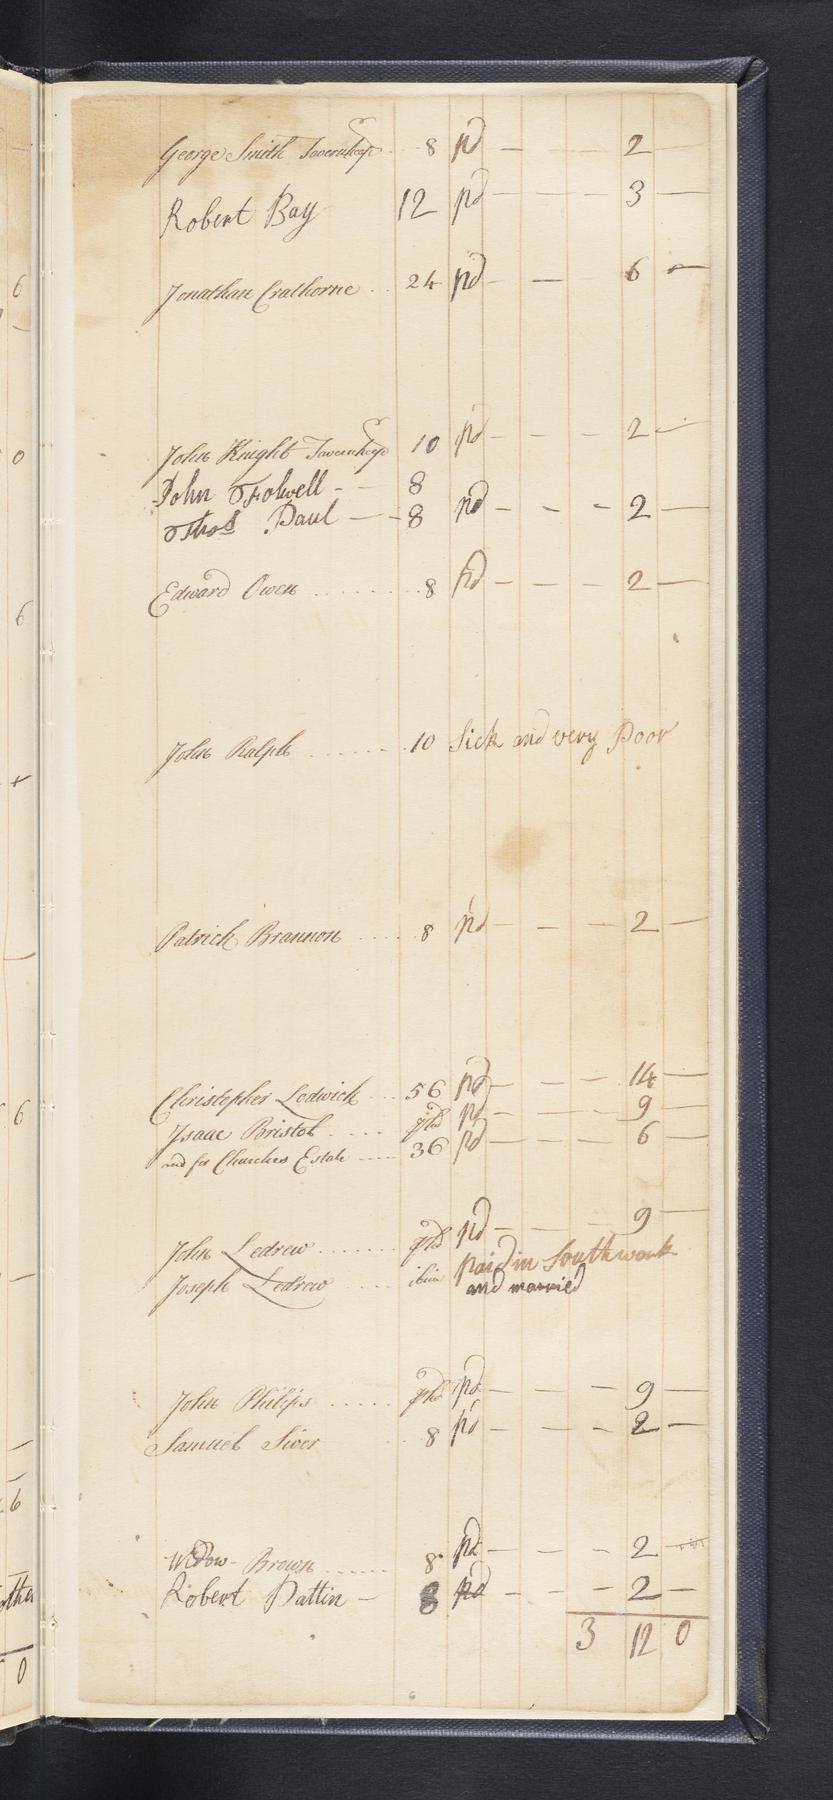 George Smith Tavernkeepr 8 pd — 2
Robert Bay 12 pd — — — 3 —
Jonathan Crathorne 24 pd — — 6 —
John Knight Tavernkeepr 10 pd — — — 2 —
John Folwell - — 8
Thos Paul — - 8 pd — - - 2 —
Edward Owen 8 pd — — — 2 —
John Ralph 10 Sick and very Poor
Patrick Brannon 8 pd — - — 2 —
Christopher Lodwick 56 pd — — — 14 —
Isaac Bristol pd — — — 9 —
and for Churches Estate 36 pd — — — 6 —
John Ledrew pd — — — 9 —
Joseph Ledrew paid in Southwark
and married
John Philips pd — — — 9 —
Samuel Siver 8 pd — — - 2 —
Widow Brown 8 pd — — - 2 —
Robert Pattin — 8 pd - - - 2 —
3 12 0
6
0
6
+
6
6
0